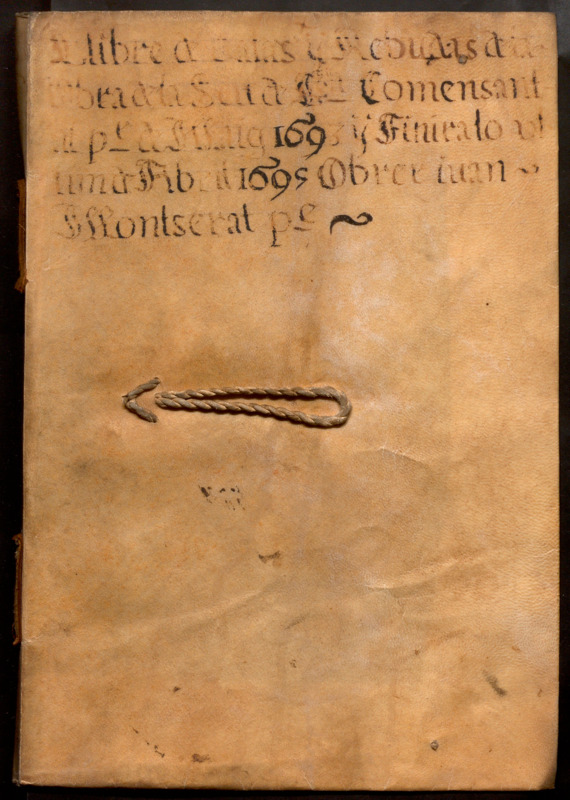 llibre de Datas y Rebudas de la
obra de la Seu de Comensant
al pr de Maig 1693 y Finira lo ul
tim de Abril 1695 Obrer iuan
Montserat pre